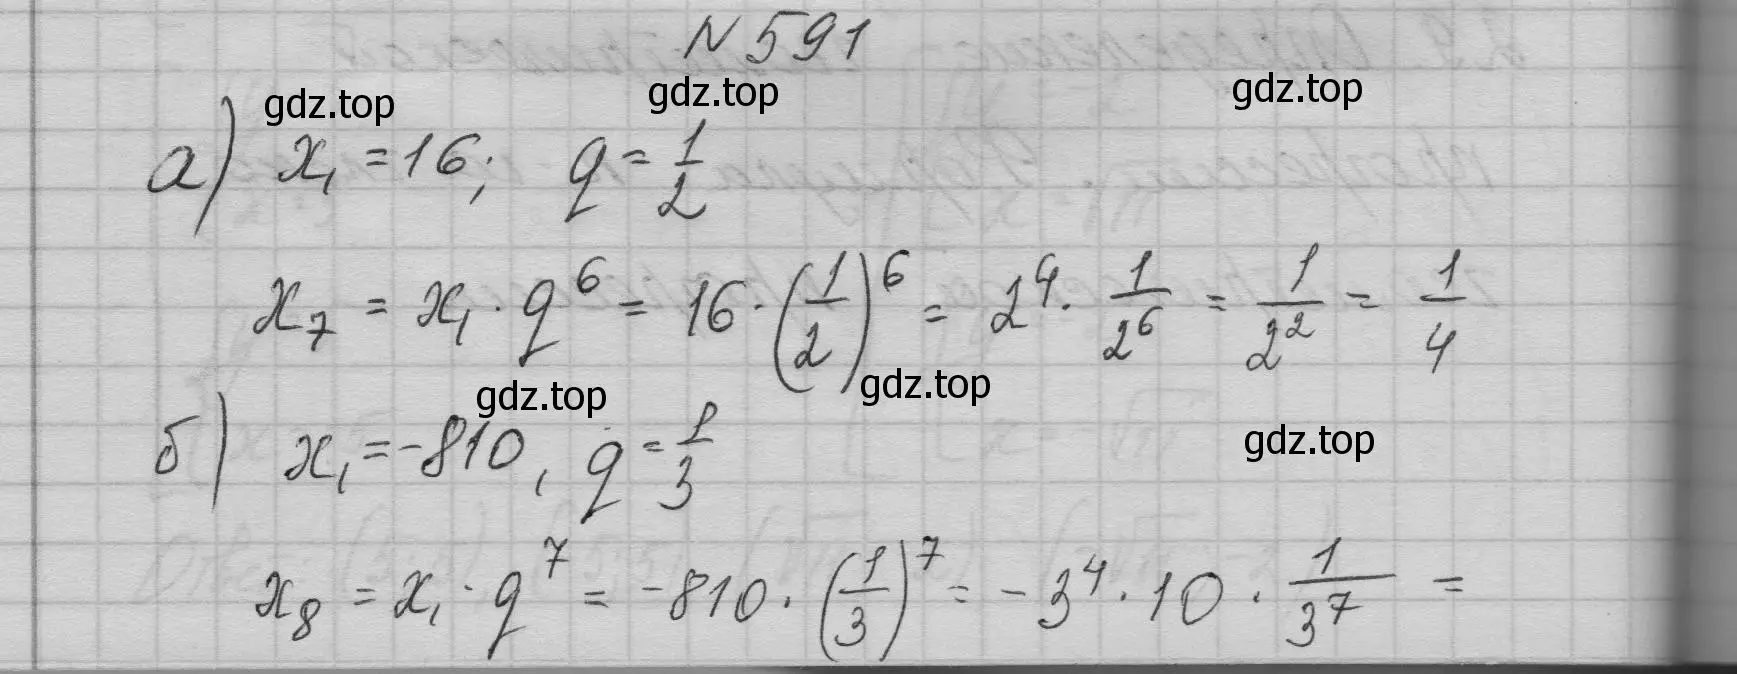 N 591
gdz.top gdz.top gdz.top
а) x₁ = 16; q = 1/2
x₇ = x₁ · q⁶ = 16 · (1/2)⁶ = 2⁴ · 1/2⁶ = 1/2² = 1/4
gdz.top gdz.top gdz.top
б) x₁ = -810, q = 1/3
x₈ = x₁ · q⁷ = -810 · (1/3)⁷ = -3⁴ · 10 · 1/3⁷ =